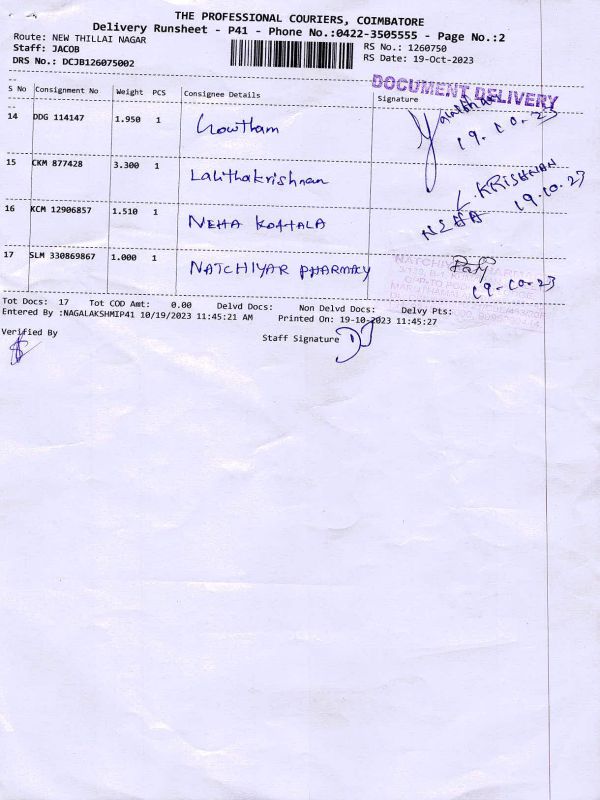 THE PROFESSIONAL COURIERS, COIMBATORE
Delivery Runsheet - P41 - Phone No.:0422-3505555 - Page No.:2
Route: NEW THILLAI NAGAR
RS No.: 1260750
Staff: JACOB
RS Date: 19-Oct-2023
DRS No.: DCJB126075002
DOCUMENT DELIVERY
S No Consignment No Weight PCS Consignee Details Signature
14 DDG 114147 1.950 1 Gowtham
19.10.23
15 CKM 877428 3.300 1 Lalithakrishnan
L.KRISHNAN
19.10.23
16 KCM 12906857 1.510 1 NEHA KOTTALA NEHA
17 SLM 330869867 1.000 1 NATCHIYAR PHARMACY
19-10-23
Tot Docs: 17 Tot COD Amt: 0.00 Delvd Docs: Non Delvd Docs: Delvy Pts:
Entered By :NAGALAKSHMIP41 10/19/2023 11:45:21 AM Printed On: 19-10-2023 11:45:27
Verified By
Staff Signature DJ